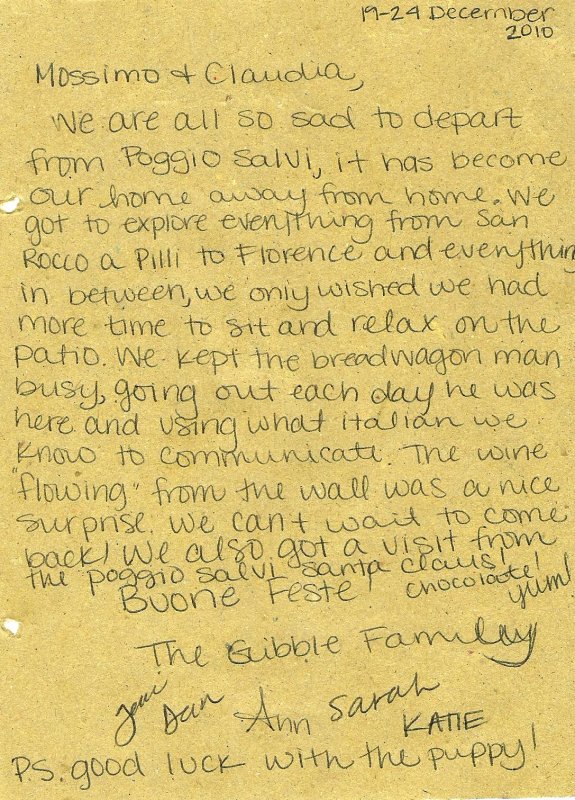 19-24 December
2010
Mossimo & Claudia,
We are all so sad to depart
from Poggio Salvi, it has become
our home away from home. We
got to explore everything from San
Rocco a Pilli to Florence and everything
in between, we only wished we had
more time to sit and relax on the
patio. We kept the breadwagon man
busy, going out each day he was
here and using what italian we
know to communicate. The wine
"flowing" from the wall was a nice
surprise. We can't wait to come
back! We also got a visit from
the poggio salvi santa claus!
Buone Feste! chocolate!
yum!
The Gibble Family
Dan Ann Sarah
KATIE
P.S. good luck with the puppy!